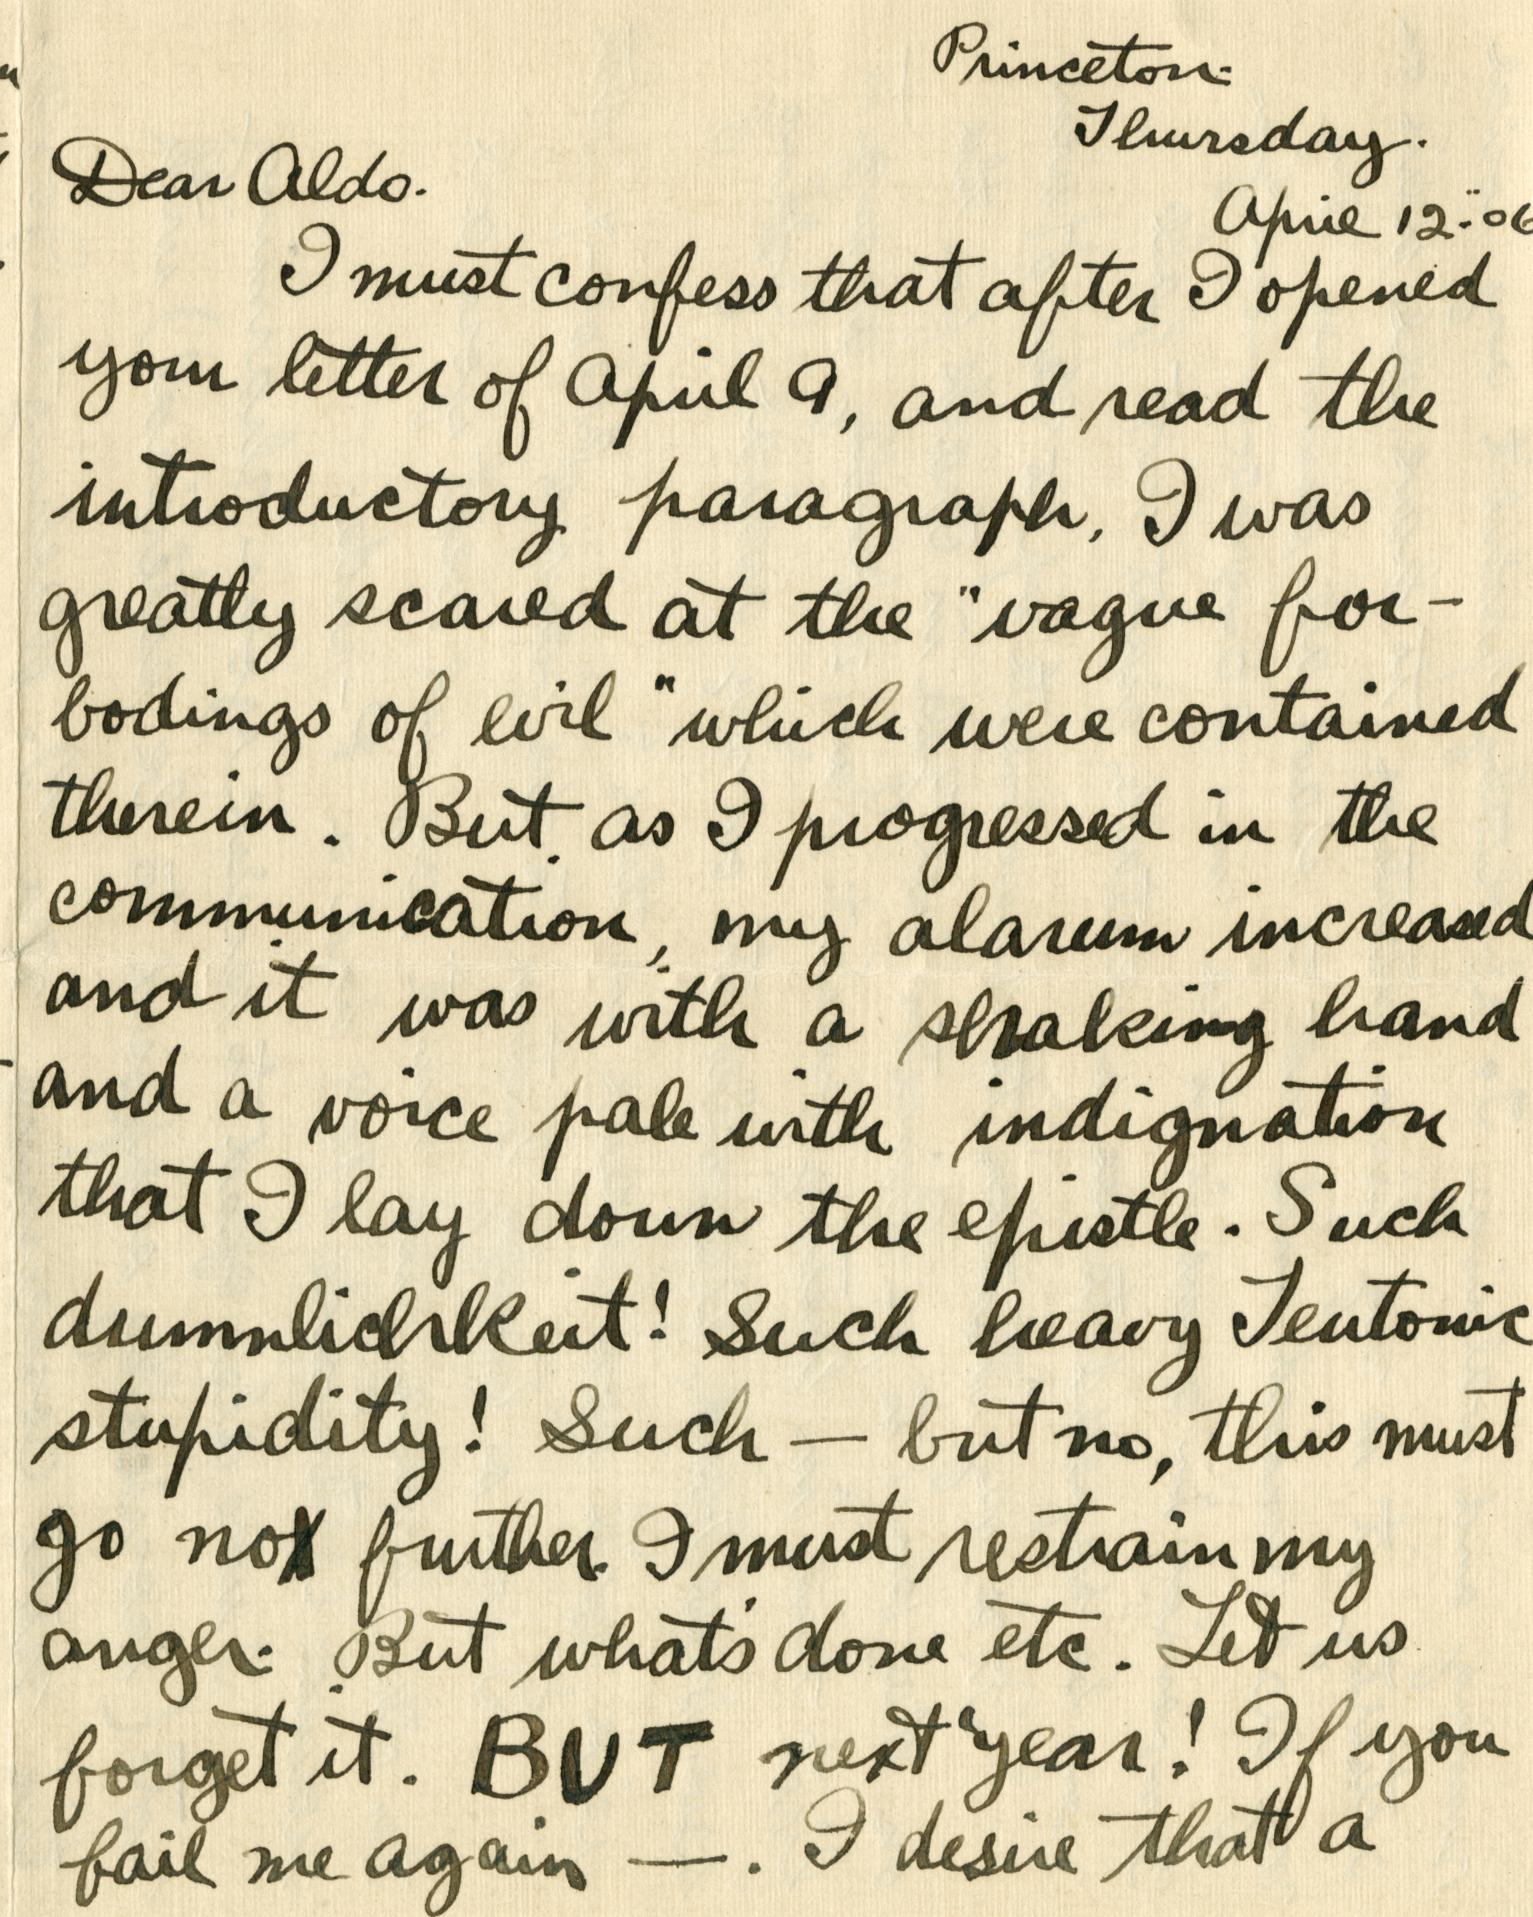 Princeton.
Thursday.
Dear Aldo.
April 12. '06
I must confess that after I opened
your letter of April 9, and read the
introductory paragraph, I was
greatly scared at the "vague for-
bodings of evil" which were contained
therein. But, as I progressed in the
communication, my alarum increased
and it was with a shaking hand
and a voice pale with indignation
that I lay down the epistle. Such
dummlichkeit! Such heavy Teutonic
stupidity! Such — but no, this must
go no further. I must restrain my
anger. But what's done etc. Let us
forget it. BUT next year! If you
fail me again —. I desire that a